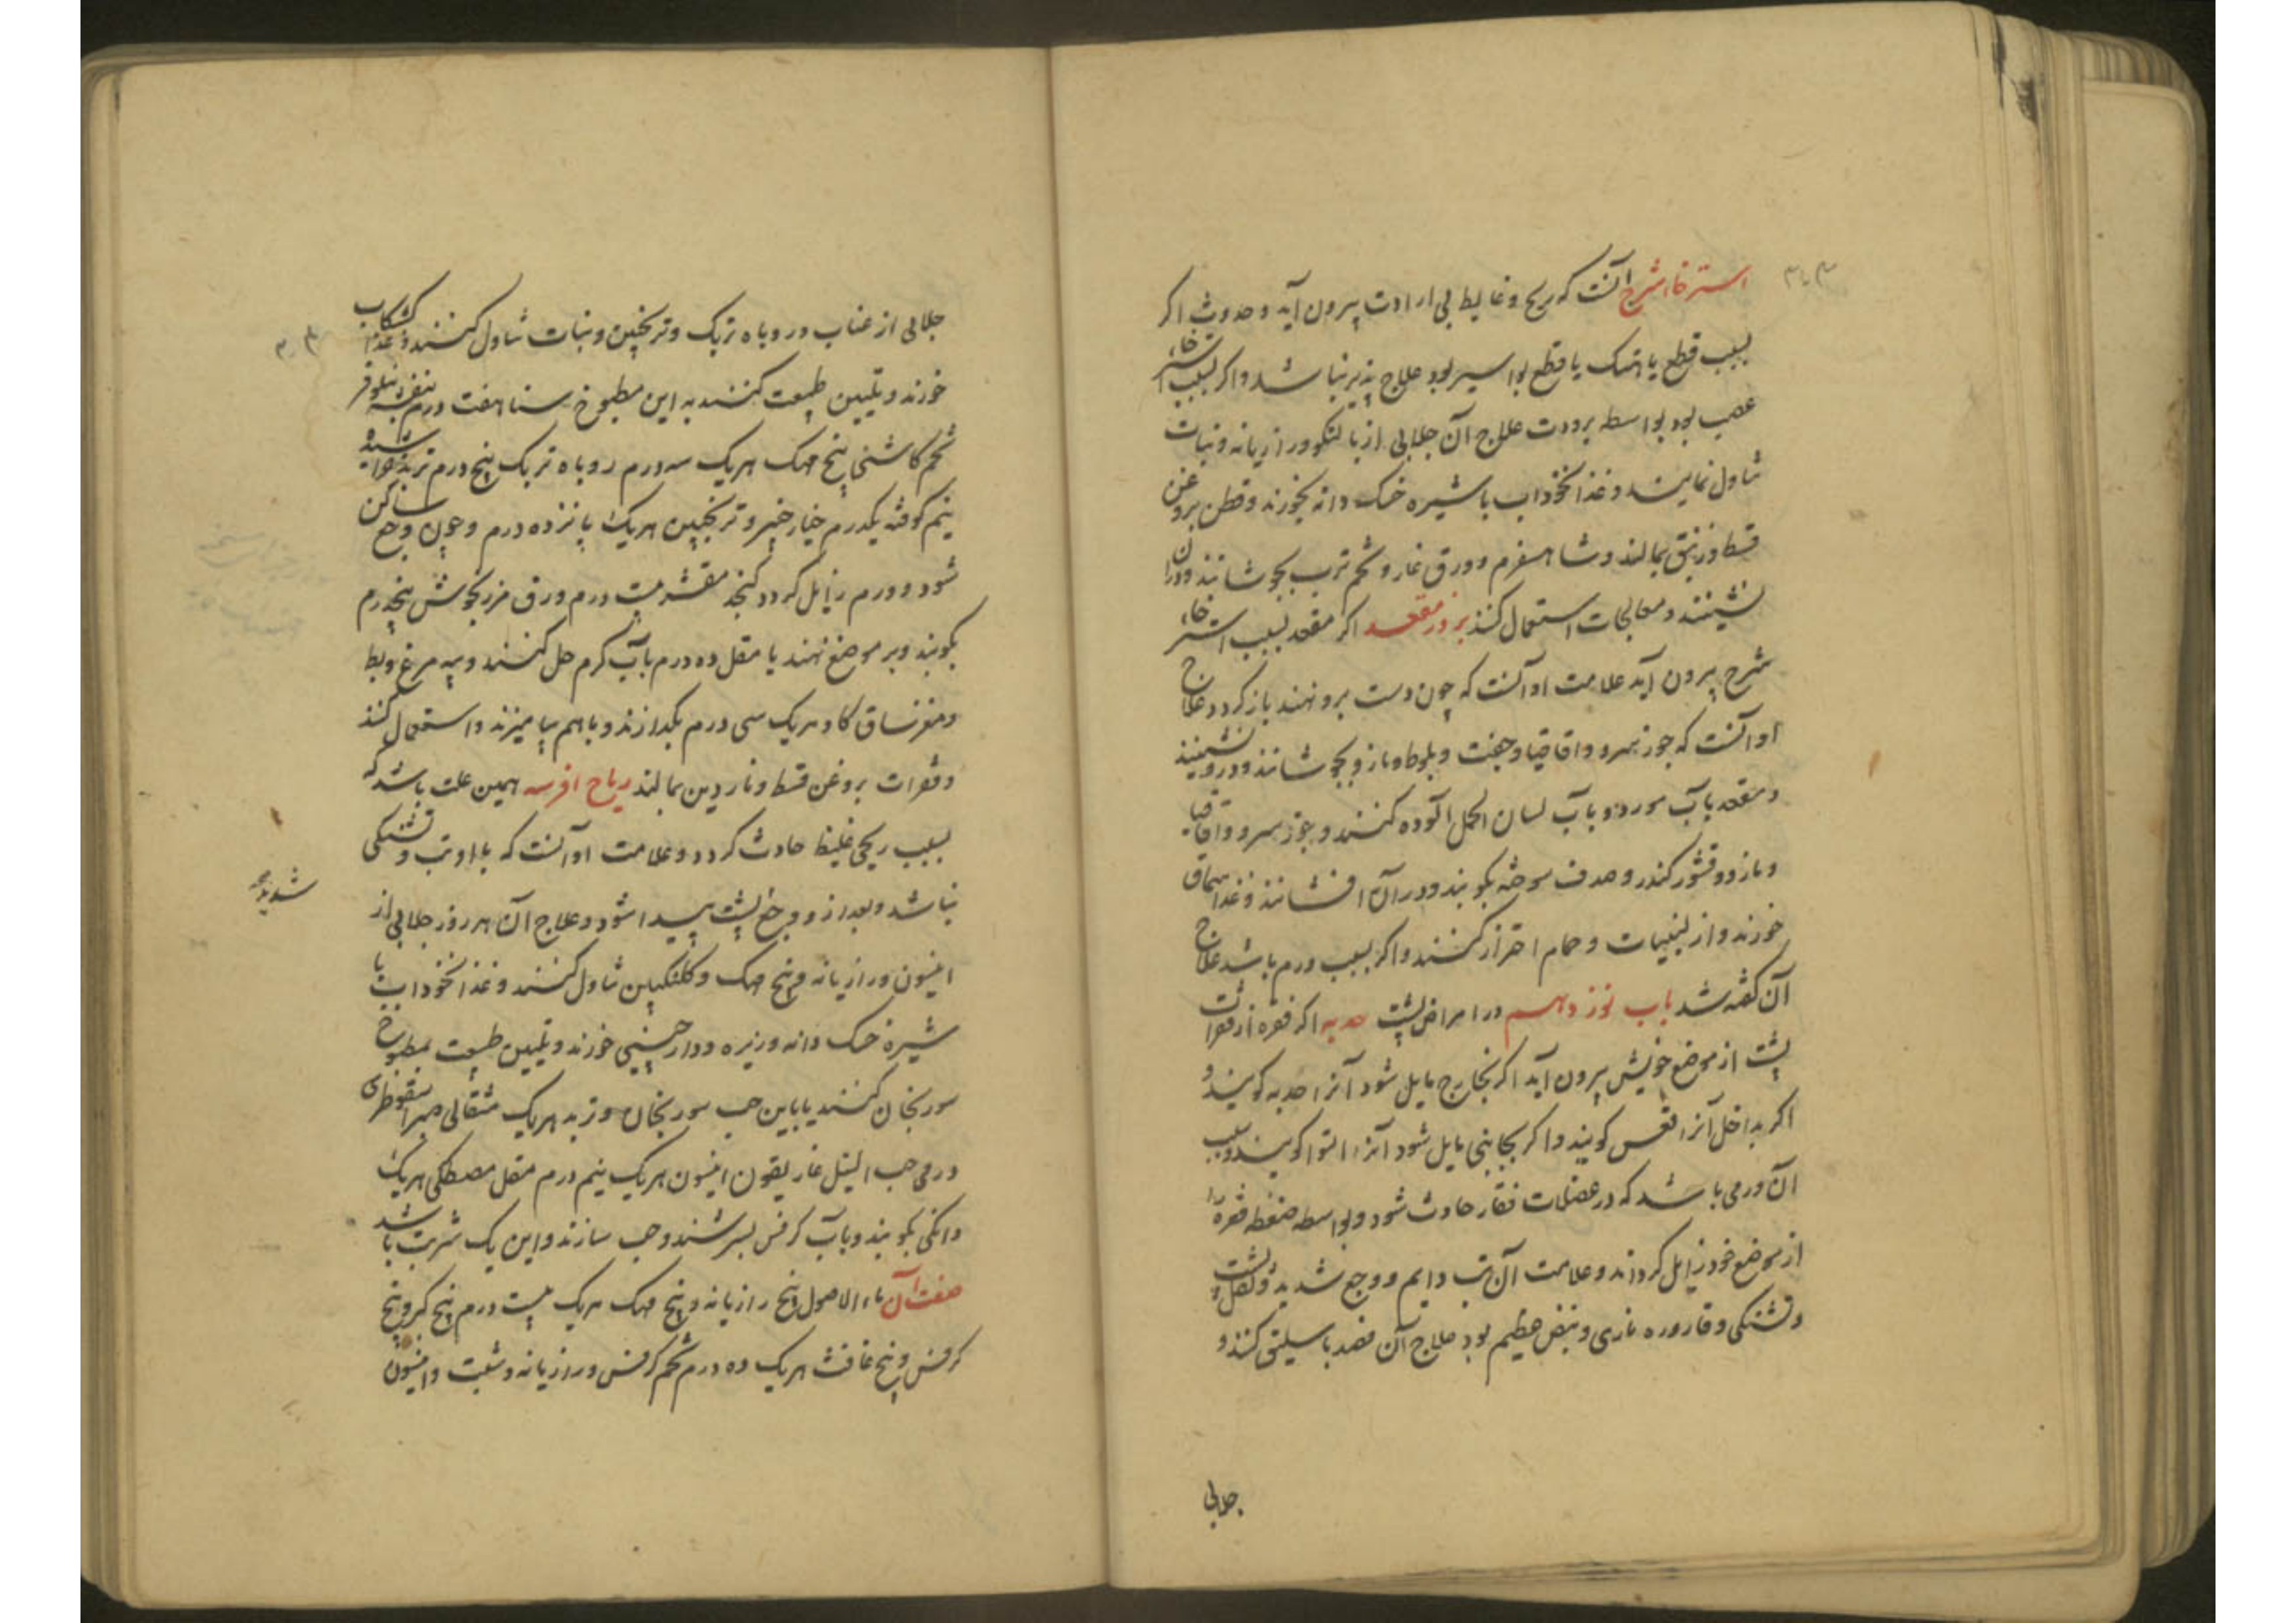 استرخاء شرج آنست که ریح و غایط بی ارادت بیرون آید و حدوث اکر
بسبب قطع یا هتک یا قطع بواسیر بود علاج پذیر نباشد و اکر بسبب استرخاء
عصب بود بواسطه برودت علاج آن جلابی از بالنکو و رازیانه و نبات
تناول نمایند و غذا نخوداب با شیره خسک دانه بخورند و قطن بروغن
قسط و زنبق بمالند و شاهسفرم و ورق غار و تخم ترب بجوشانند و در آن
نشینند و معالجات استعمال کنند بروز مقعد اکر مقعد بسبب استرخاء
شرج بیرون آید علامت او آنست که چون دست برو نهند باز کردد علاج
او آنست که جوز سرو و اقاقیا و جفت و بلوط و مازو بجوشانند و درو نشینند
و مقعد بآب مورد و بآب لسان الحمل آلوده کنند و جوز سرو و اقاقیا
و مازو و قشور کندر و صدف سوخته بکوبند و در آن افشانند و غذا سماق
خورند و از لبنیات و حمام احتراز کنند و اکر بسبب ورم باشد علاج
آن کفته شد باب نوزدهم در امراض پشت حدبه اکر فقره از فقرات
پشت از موضع خویش بیرون آید اکر بخارج مایل شود آنرا حدبه کویند و
اکر بداخل آنرا تقعس کویند و اکر بجانبی مایل شود آنرا التوا کویند و سبب
آن ورمی باشد که در عضلات فقار حادث شود و بواسطه ضغطه فقره را
از موضع خود زایل کرداند و علامت آن تب دایم و وجع شدید و ثقل پشت
و تشنکی و قاروره ناری و نبض عظیم بود علاج آن فصد باسلیق کنند و
جلابی
جلابی از عناب و روباه تربک و ترنجبین و نبات تناول کنند و غذا کشکاب
خورند و تلیین طبیعت کنند به این مطبوخ سنا هفت درم بنفشه نیلوفر
تخم کاشنی بیخ مهک هریک سه درم روباه تربک پنج درم تربد خراشیده
نیم کوفته یکدرم خیارچنبر و ترنجبین هریک پانزده درم و چون وجع ساکن
شود و ورم زایل کردد کنجد مقشر بیست درم ورق مرزنجوش پنجدرم
بکوبند و بر موضع نهند یا مقل ده درم بآب کرم حل کنند و پیه مرغ و بط
و مغز ساق کاو هریک سی درم بکدازند و باهم بیامیزند و استعمال کنند
و فقرات بروغن قسط و ناردین بمالند ریاح افرسه همین علت باشد که
بسبب ریحی غلیظ حادث کردد و علامت او آنست که با او تب و تشنکی
نباشد و بعد از و وجع پشت پیدا شود و علاج آن هر روز جلابی از
شدید
انیسون و رازیانه و بیخ مهک و کلنکبین تناول کنند و غذا نخوداب با
شیره خسک دانه و زیره و دارچینی خورند و تلیین طبیعت بمطبوخ
سورنجان کنند یا باین حب سورنجان و تربد هریک مثقالی صبر اسقوطری
درمی حب النیل غاریقون انیسون هریک نیم درم مقل مصطکی هریک
دانکی بکوبند و بآب کرفس بسرشند و حب سازند و این یک شربت باشد
صفت آن ماء الاصول بیخ رازیانه و بیخ مهک هریک بیست درم بیخ کبر و بیخ
کرفس و بیخ غافث هریک ده درم تخم کرفس و رازیانه و شبت و انیسون